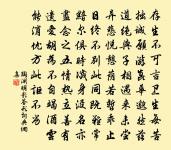 存生不可言衛生每苦
拙誠願游崑華邈然茲
道絕與子相遇來未嘗
異悲悅憩蔭若暫乖止
日終不別此同既難常
黯爾俱時滅身沒名亦
盡念之五情熱立善有
遺愛胡為不自竭酒云
能消憂方此詎不劣
陶淵明影答形詩